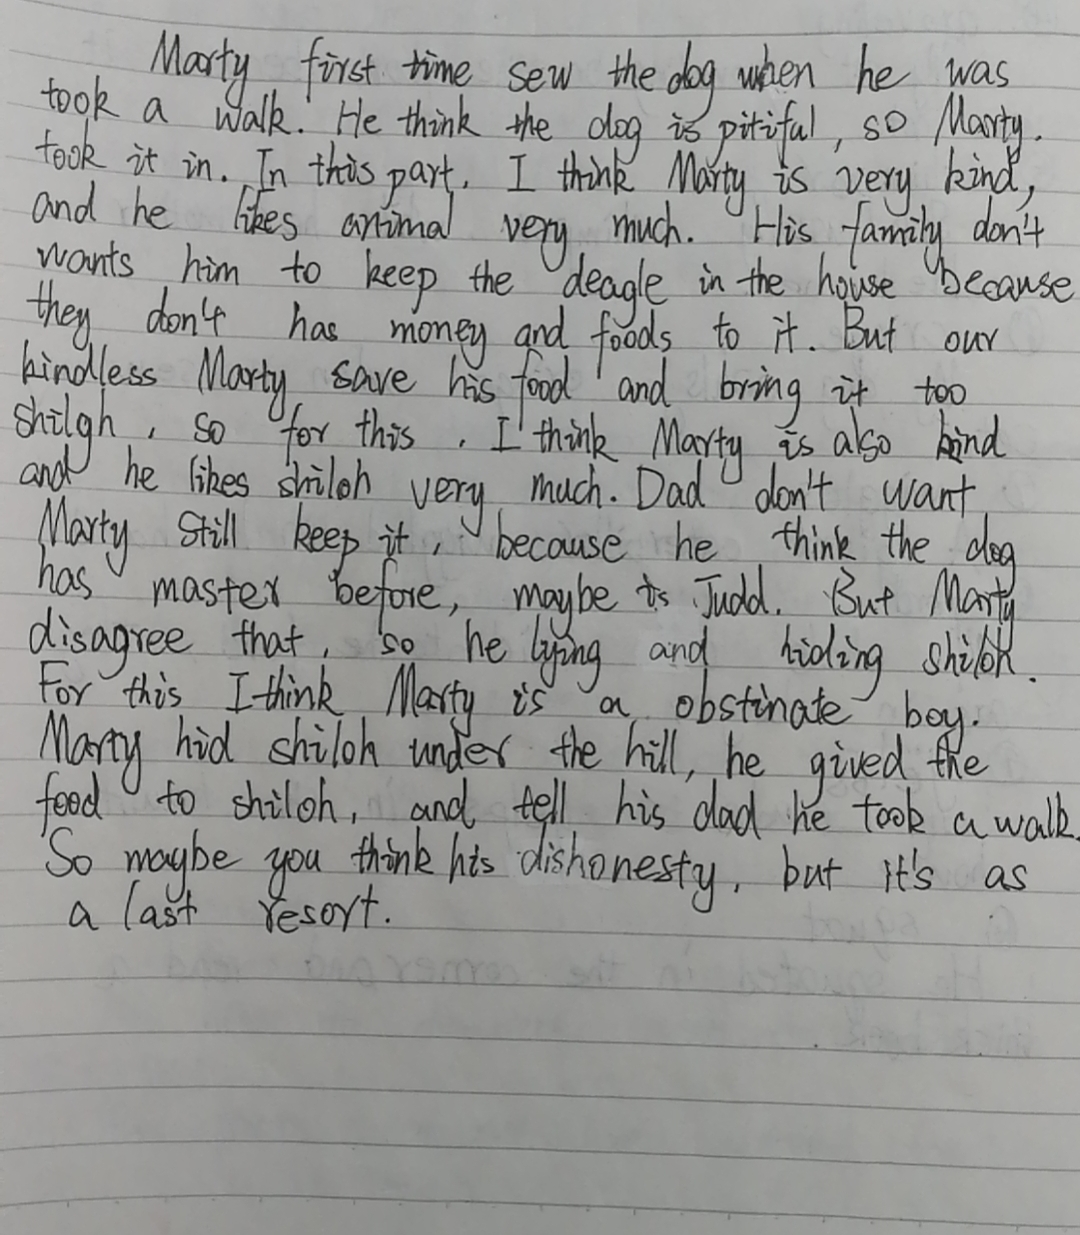 Marty first time sew the dog when he was
took a walk. He think the dog is pitiful, so Marty.
took it in. In this part, I think Marty is very kind,
and he likes animal very much. His family don't
wants him to keep the deagle in the house because
they don't has money and foods to it. But our
kindless Marty save his food and bring it too
shilgh, so for this, I think Marty is also kind
and he likes shiloh very much. Dad don't want
Marty still keep it, because he think the dog
has master before, maybe is Judd. But Marty
disagree that, so he lying and hiding shiloh.
For this I think Marty is a obstinate boy.
Marty hid shiloh under the hill, he gived the
food to shiloh, and tell his dad he took a walk.
So maybe you think his dishonesty, but it's as
a last resort.